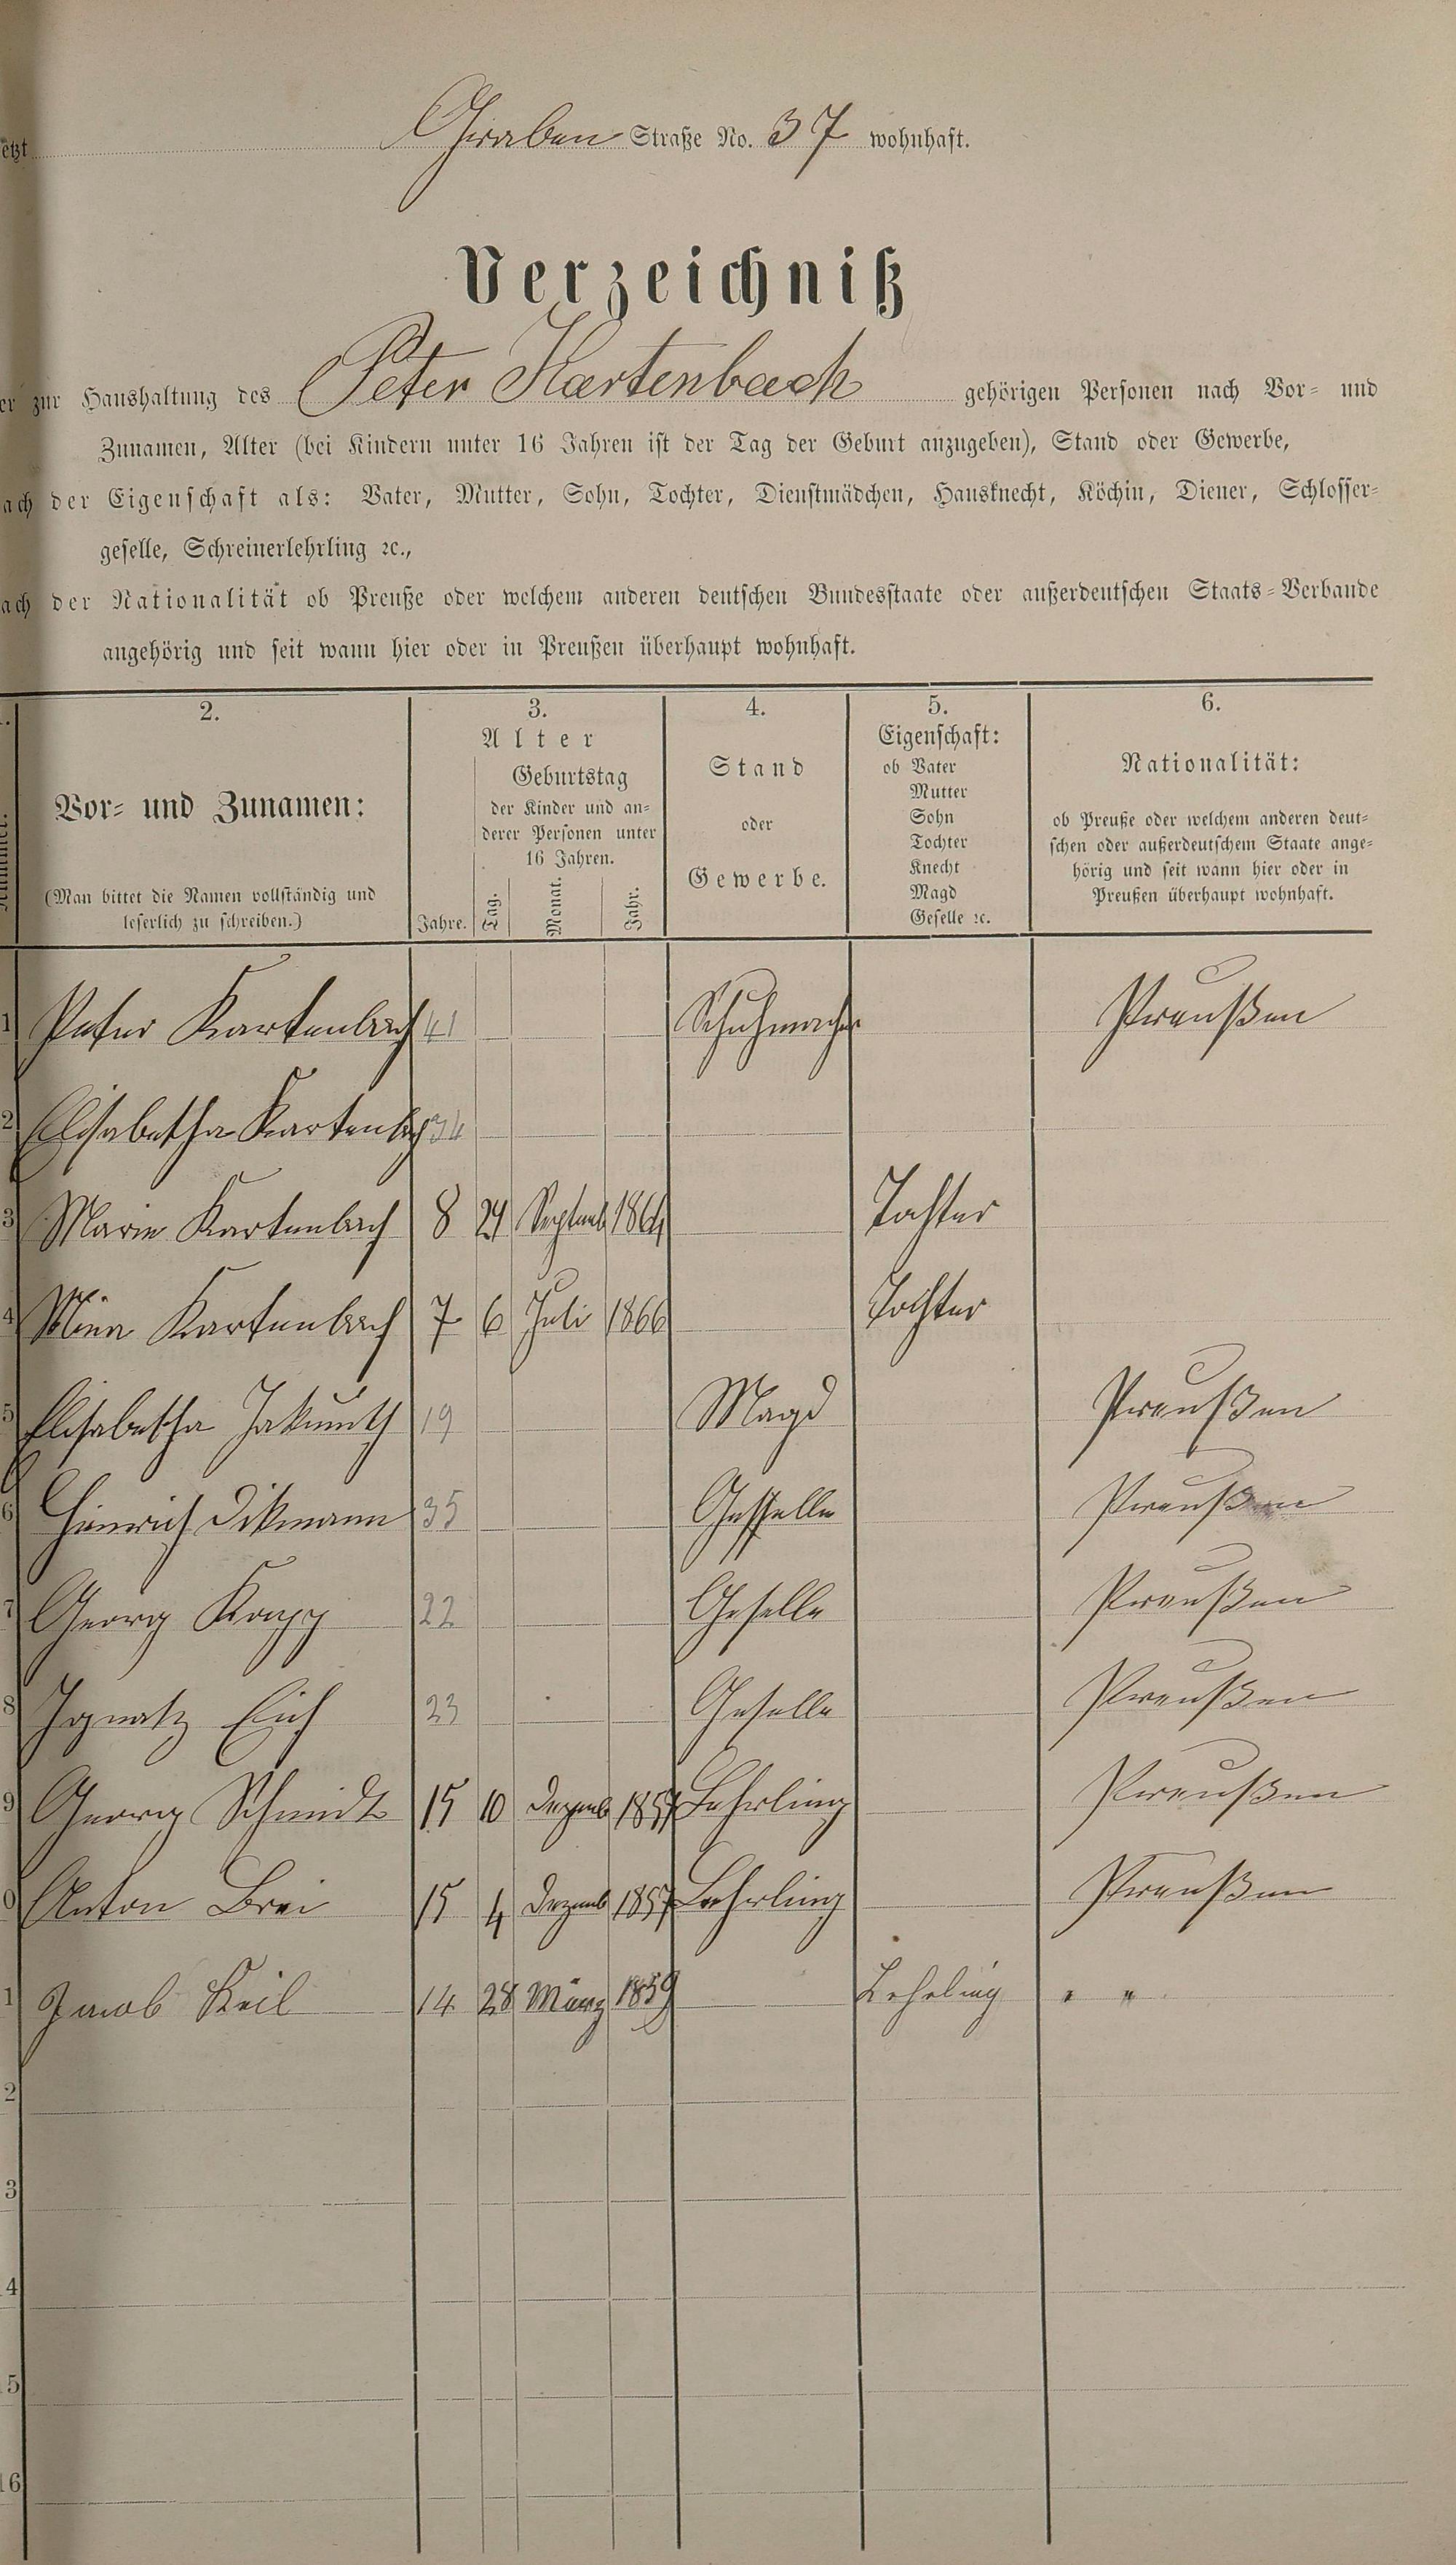 etzt Graben Straße No. 37 wohnhaft.
Verzeichniß
er zur Haushaltung des Peter Kartenbach gehörigen Personen nach Vor- und
Zunamen, Alter (bei Kindern unter 16 Jahren ist der Tag der Geburt anzugeben), Stand oder Gewerbe,
ach der Eigenschaft als: Vater, Mutter, Sohn, Tochter, Dienstmädchen, Hausknecht, Köchin, Diener, Schlosser-
geselle, Schreinerlehrling ꝛc.,
ach der Nationalität ob Preuße oder welchem anderen deutschen Bundesstaate oder außerdeutschen Staats-Verbande
angehörig und seit wann hier oder in Preußen überhaupt wohnhaft.
2.
Vor- und Zunamen:
(Man bittet die Namen vollständig und
leserlich zu schreiben.)
3.
Alter
Geburtstag
der Kinder und an-
derer Personen unter
16 Jahren.
Jahre. Tag. Monat. Jahr.
4.
Stand
oder
Gewerbe.
5.
Eigenschaft:
ob Vater
Mutter
Sohn
Tochter
Knecht
Magd
Geselle ꝛc.
6.
Nationalität:
ob Preuße oder welchem anderen deut-
schen oder außerdeutschem Staate ange-
hörig und seit wann hier oder in
Preußen überhaupt wohnhaft.
1 Peter Kartenbach 41 Schuhmacher Preußen
2 Elisabetha Kartenbach 34
3 Marie Kartenbach 8 24 Septemb 1864 Tochter
4 Mina Kartenbach 7 6 Juli 1866 Tochter
5 Elisabetha 19 Magd Preußen
6 Heinrich Dikmann 35 Gesselle Preußen
7 Georg Kapp 22 Geselle Preußen
8 Ignatz Eich 23 Geselle Preußen
9 Georg Schmidt 15 10 Dezemb 1857 Lehrling Preußen
0 Anton Brei 15 4 Dezemb 1857 Lehrling Preußen
1 Jacob Keil 14 28 März 1859 Lehrling " "
2
3
4
5
16